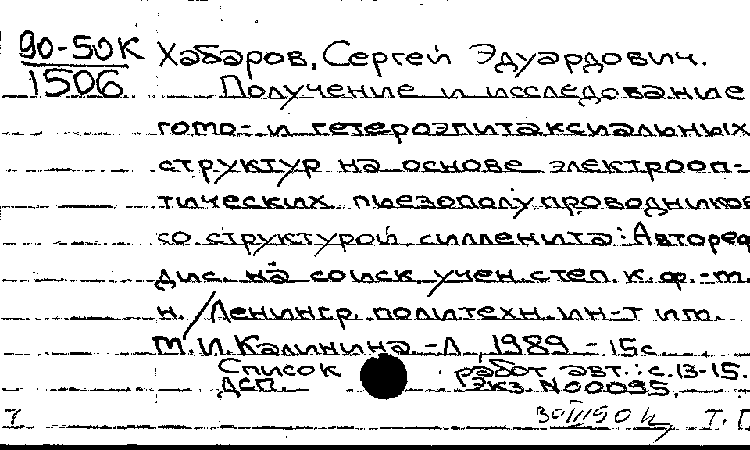 90-50К Хабаров, Сергей Эдуардович.
1506 Получение и исследование
гомо- и гетероэпитаксиальных
структур на основе электрооп-
тических пьезополупроводников
со структурой силленита: Автореф
дис. на соиск учен. степ. к. ф.-м.
н. / Ленингр. политехн. ин-т им.
М.И. Калинина. - Л, 1989 - 15с
Список работ авт.: с. 13-15.
ДСП. Экз. N00095.
Т.